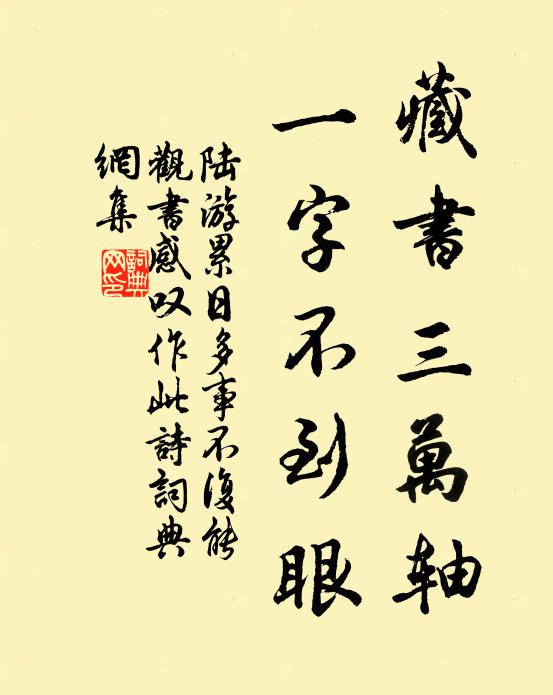 藏書三萬轴
一字不到眼
陆游累日多事不復能
觀書感叹作此詩詞典
網集
詞典网印